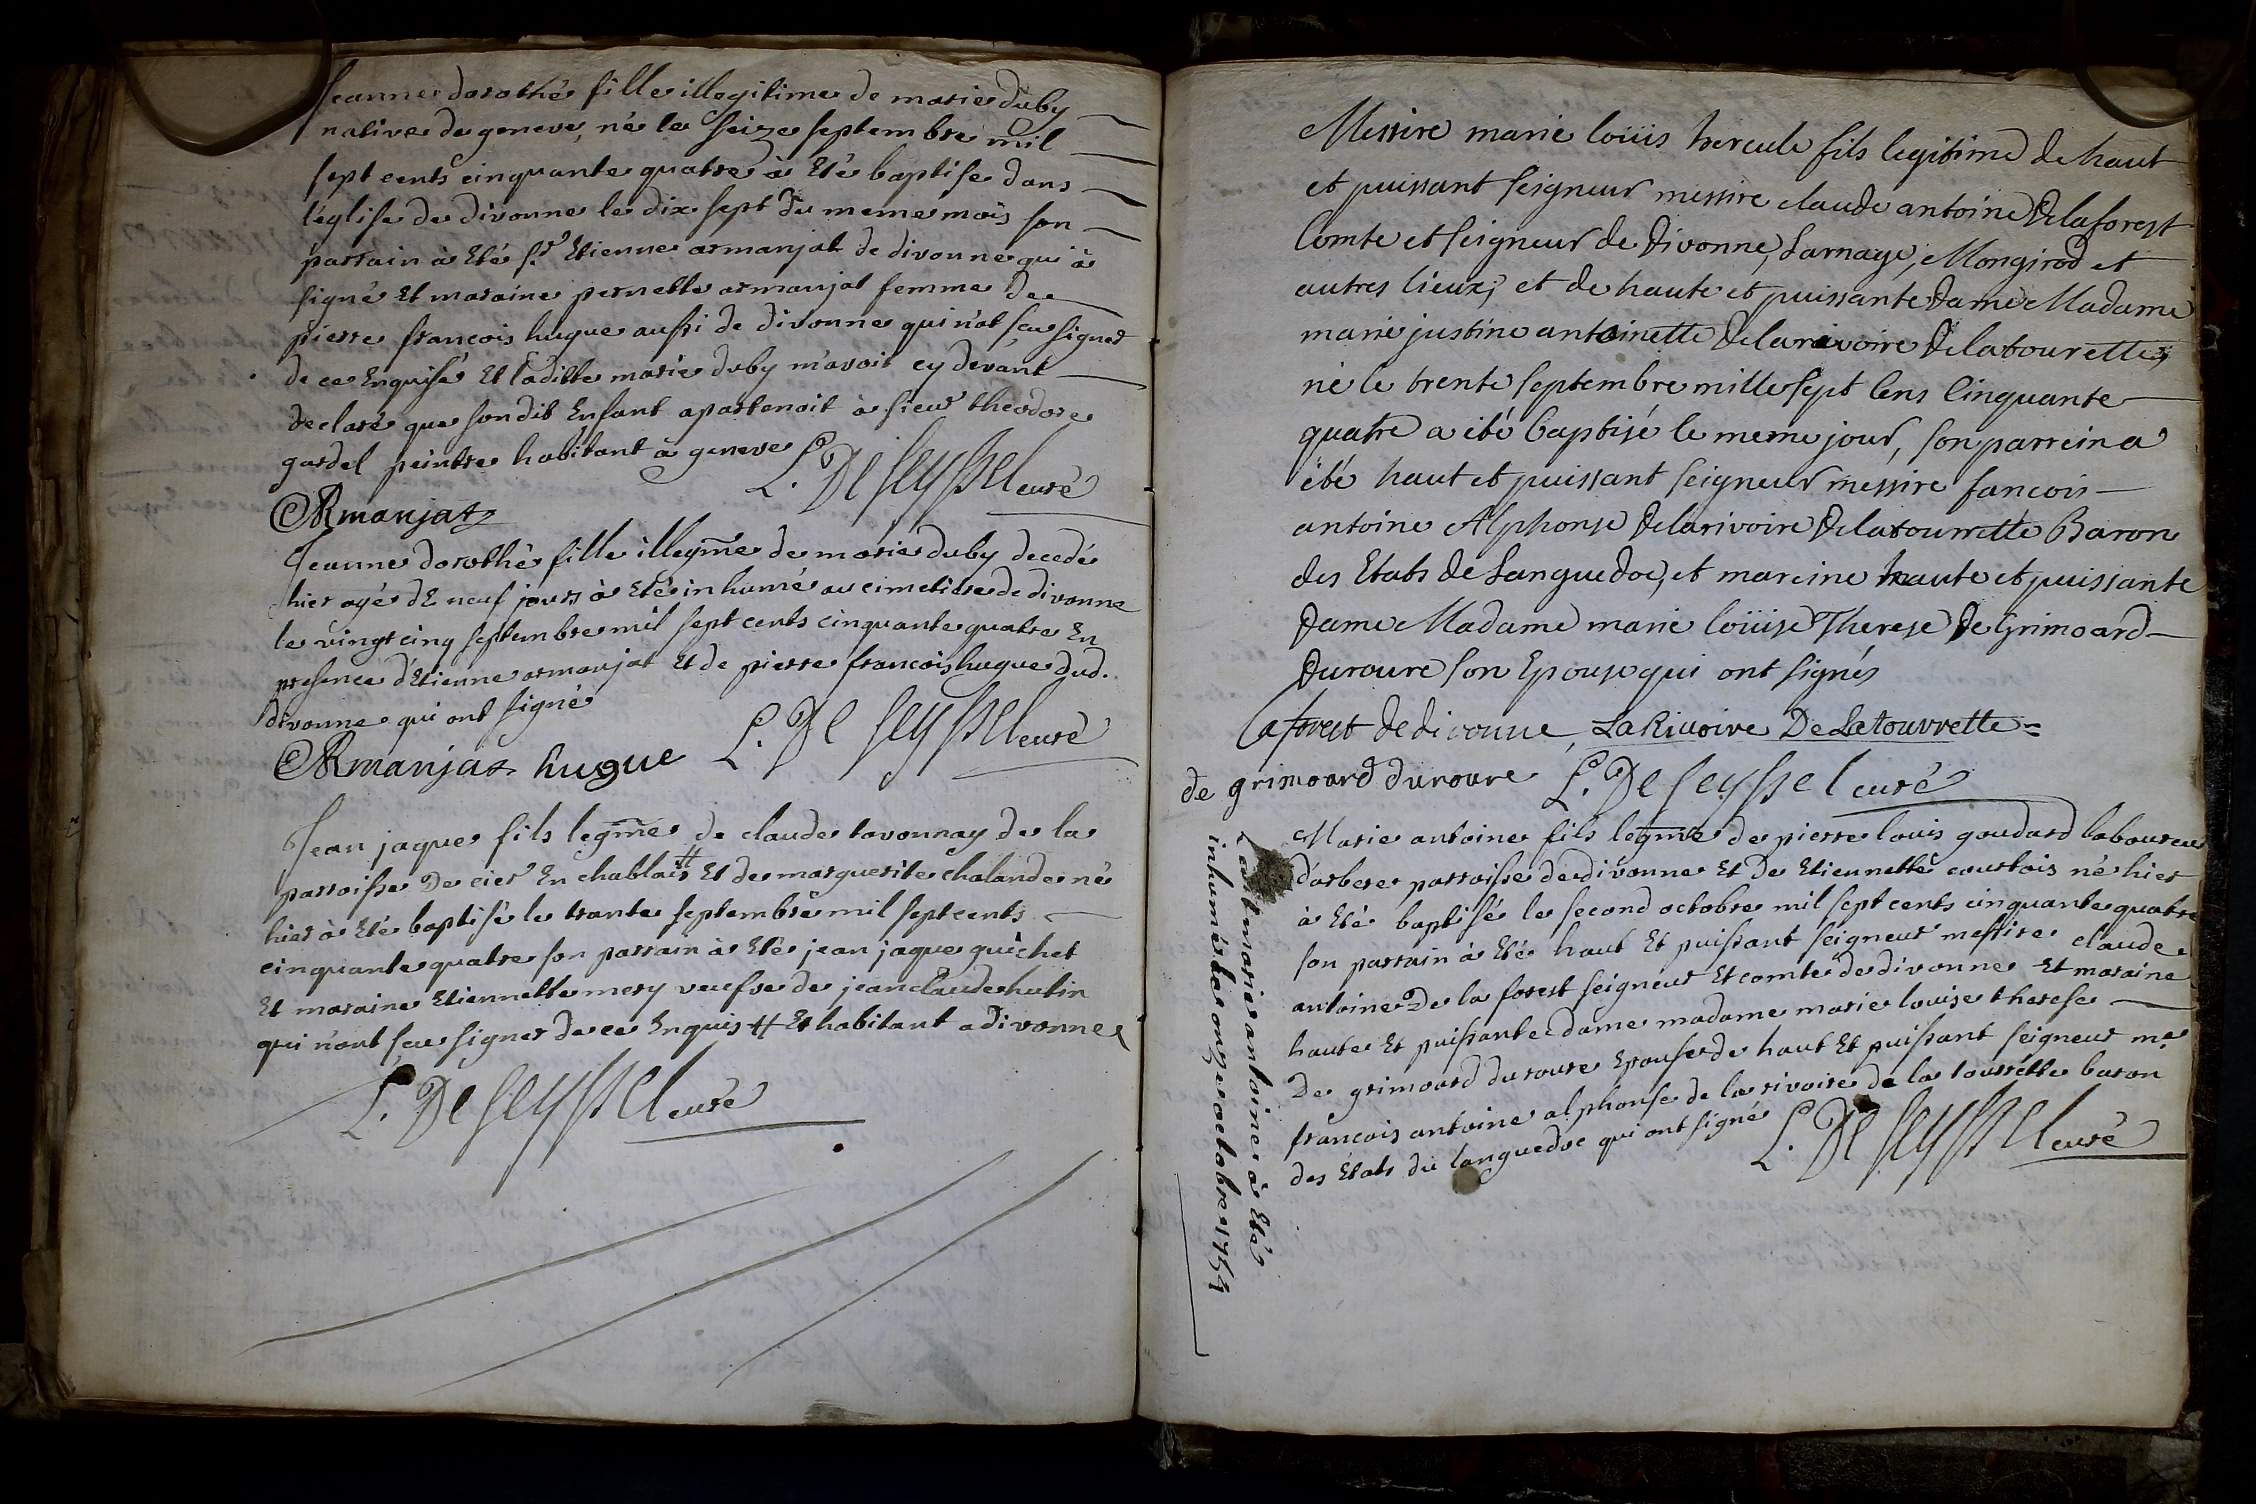 Jeanne dorothé fille illegitime de marie duby
native de geneve, né le seize septembre mil
sept cents cinquante quatre à Eté baptisé dans
l'église de divonne le dix sept du meme mois son
parrain à Eté sr. Etienne armanjat de divonne qui à
signé Et maraine pernette armanjat femme de
pierre francois hugue aussi de divonne qui n'at sçeu signer
de ce Enquise Et laditte marie duby m'avoit cy devant
declaré que sondit Enfant apartenoit à sieur theodore
gardel peintre habitant à geneve L. De Seyssel curé
Armanjat
Jeanne dorothé fille illegme de marie duby decedé
hier agé de neuf jours à Eté inhumé au cimetiere de divonne
le vingt cinq septembre mil sept cents cinquante quatre En
presence d'Etienne armanjat Et de pierre francois hugue dud.
divonne qui ont signé
Armanjat hugue L. De Seyssel curé
Jean jaque fils legme de claude tavonnay de la
parroisse De cier En chablais # Et de marguerite chalande né
hier à Eté baptisé le trante septembre mil sept cents
cinquante quatre son parrain à Eté jean jaque guichet
Et maraine Etiennette mery veufve de jean claude hutin
qui n'ont sçeu signer de ce Enquis # Et habitant a divonne
L. De Seyssel curé
Messire marie loüis hercule fils legitime de haut
et puissant seigneur messire claude antoine Delaforest
Comte et seigneur de Divonne, Larnage, Mongirod et
autres lieux; et de haute et puissante Dame Madame
marie justine antoinette Delarivoire Delatourette,
né le trente septembre mille sept Cens Cinquante
quatre a été baptisé le meme jour, son parrein a
été haut et puissant seigneur messire fancois
antoine Alphonse Delarivoire Delatourrette Baron
des Etats de Languedoc, et mareine haute et puissante
Dame Madame marie loüise Therese de Grimoard
Duroure son Epouse qui ont signés
Laforest de divonne, La Rivoire De La Tourrette =
de grimoard duroure L. De Seyssel curé
Marie antoine fils legme de pierre louis goudard laboureur
d'arbere parroisse de divonne Et De Etiennette courtois né hier
à Eté baptisé le second octobre mil sept cents cinquante quatre
son parrain à Eté haut Et puissant seigneur messire claude
antoine De la forest seigneur Et comte de divonne Et maraine
haute Et puissante dame madame marie louise therese
De grimoard du roure Epouse de haut Et puissant seigneur mre
francois antoine alphonse de la rivoire de la tourrette baron
des Etats du languedoc qui ont signé L. De Seyssel curé
Ledit marie antoine à Eté
inhumé le onze octobre 1754